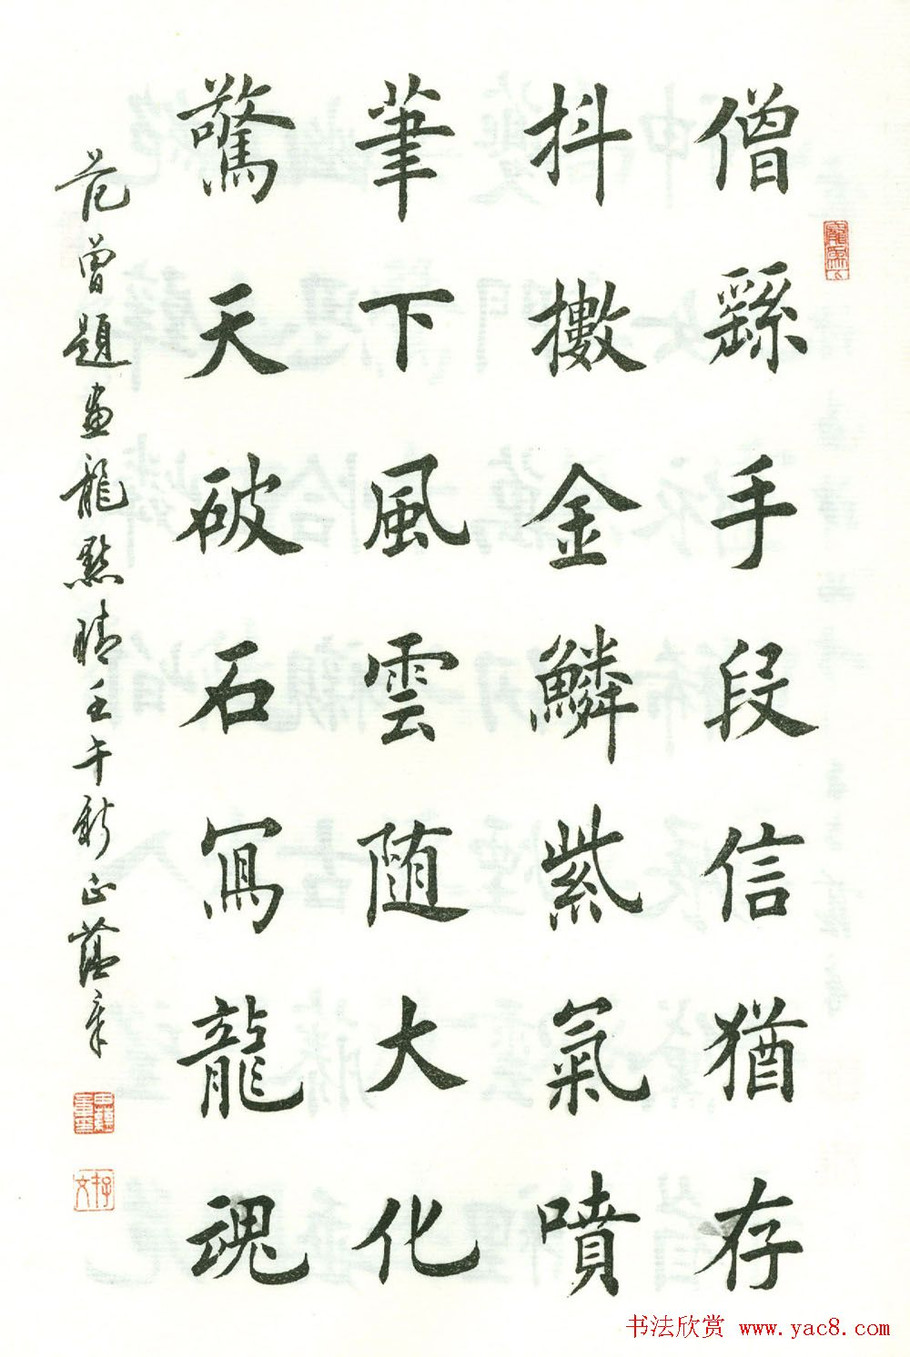 僧繇手段信猶存
抖擻金鱗紫氣噴
筆下風雲随大化
驚天破石冩龍魂
范曾題畫龍點睛壬午新正蘊章
书法欣赏 www.yac8.com